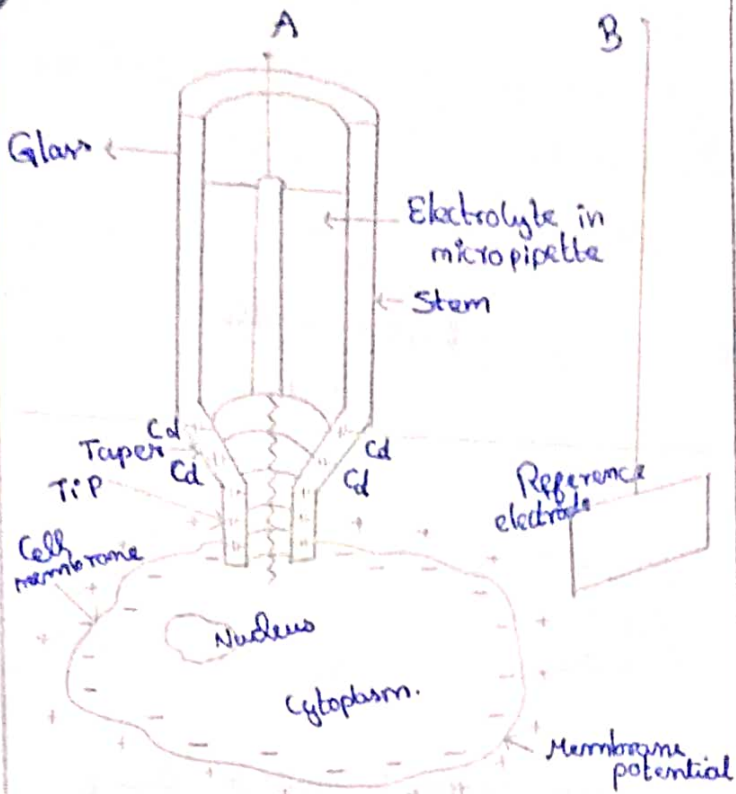 A
B
Glass
Electrolyte in
micropipette
Stem
Cd
Taper
Cd
Cd
Cd
TiP
Reference
electrode
Cell
membrane
Nucleus
Cytoplasm.
Membrane
potential